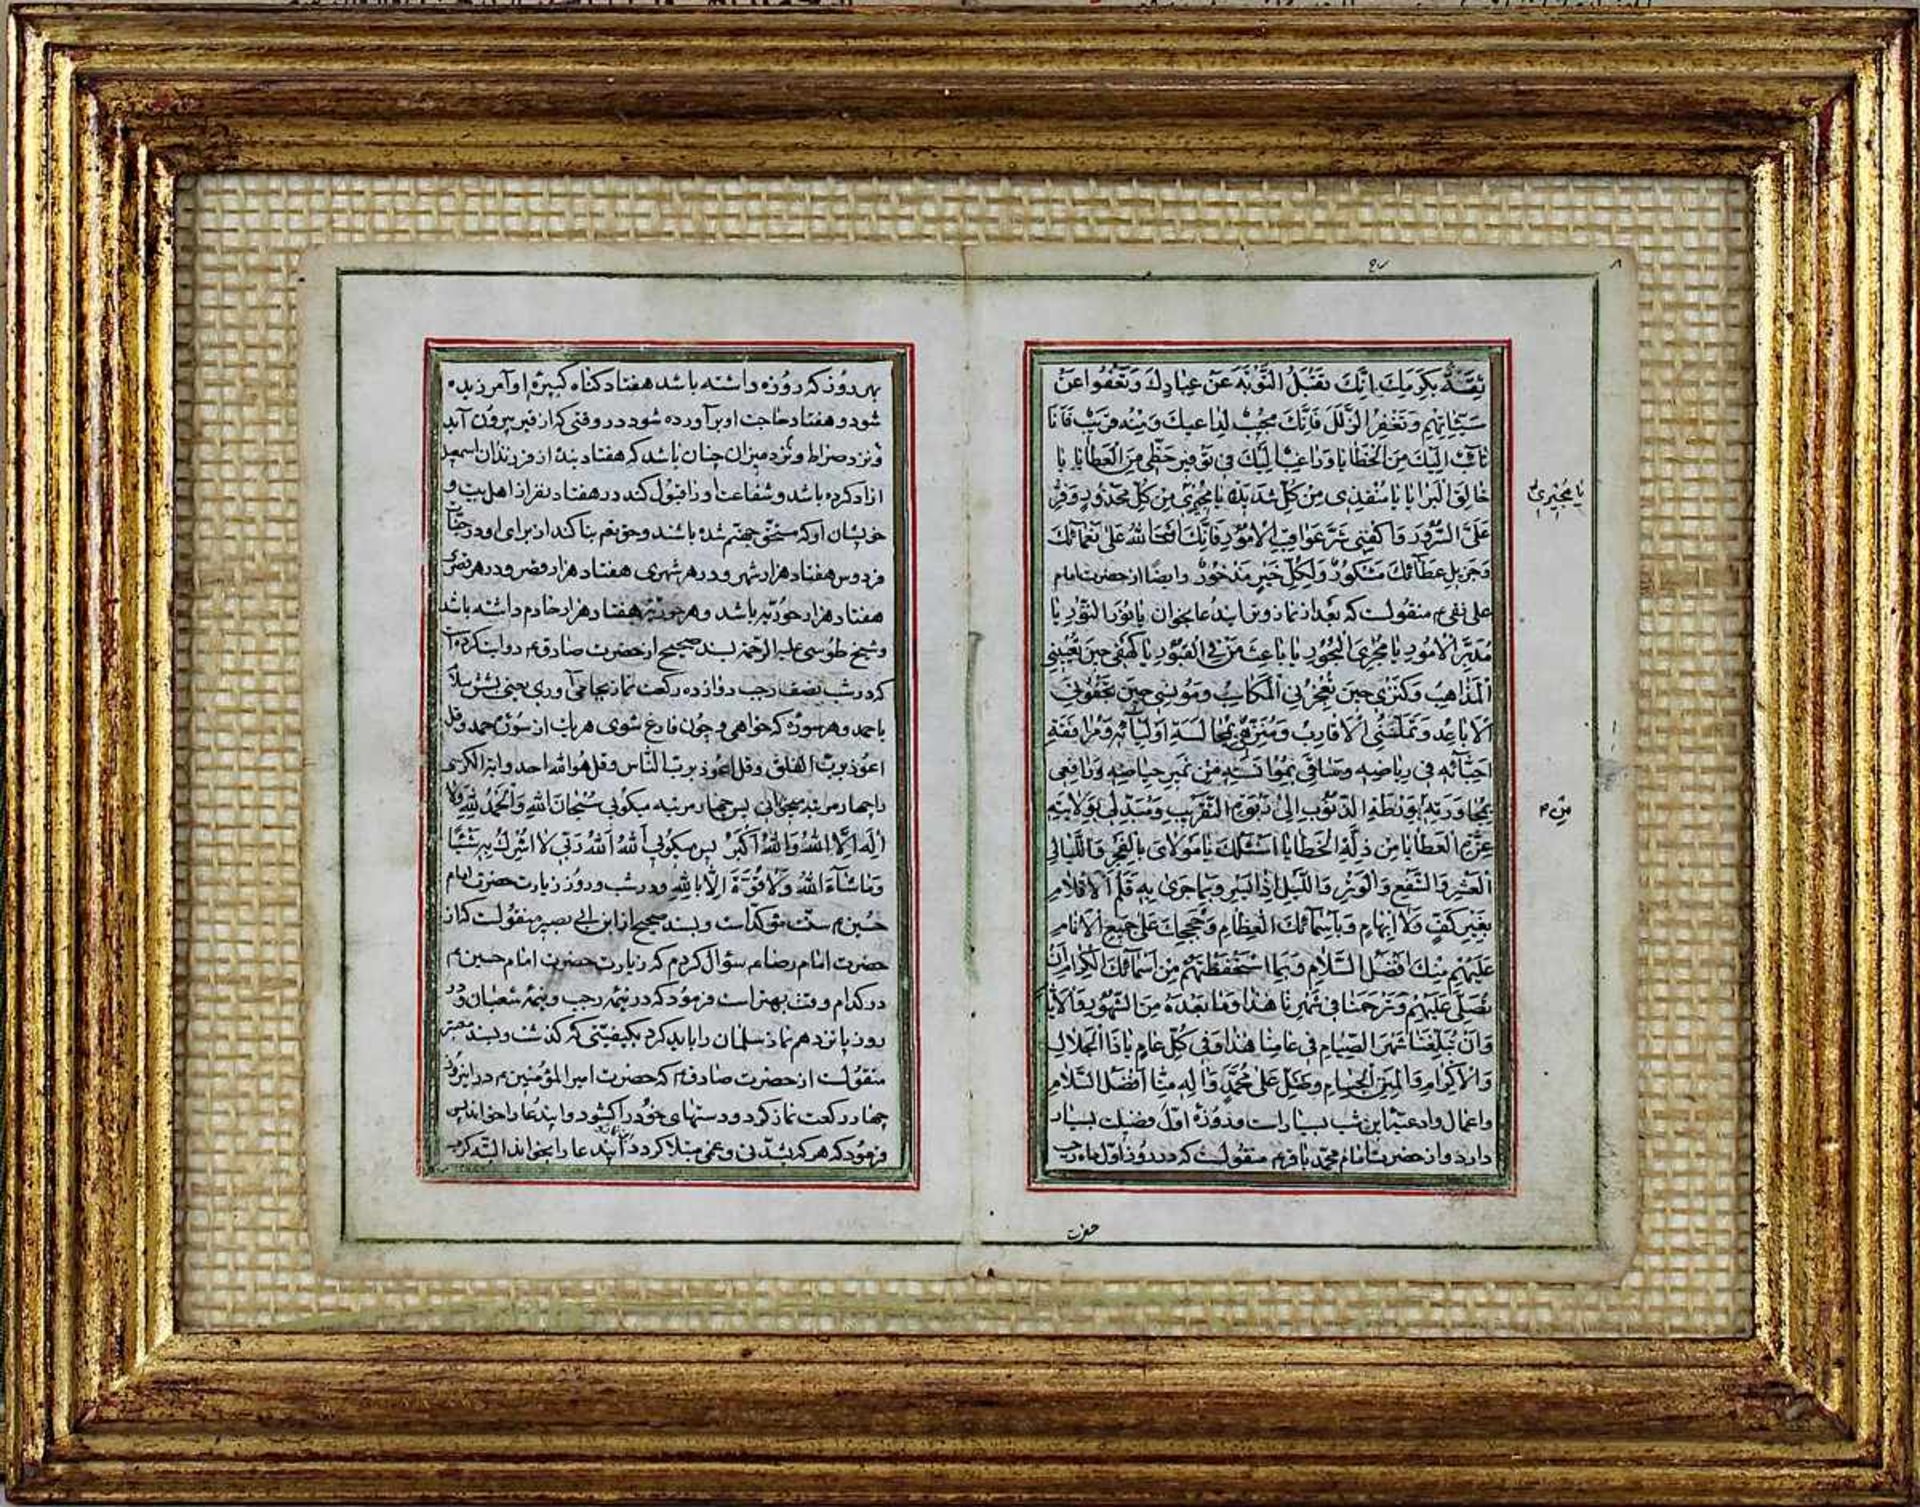 ثِقَةً بِكَرَمِكَ بِاَنَّكَ تَقْبَلُ التَّوْبَةَ عَنْ عِبَادِكَ وَتَعْفُوا عَنْ
سَيِّئَاتِهِمْ وَتَغْفِرُ الزَّلَلَ فَاِنَّكَ مُجِيبٌ لِدَاعِيكَ وَمِنْهُ قَرِيبٌ فَاَنَا
تَائِبٌ اِلَيْكَ مِنَ الْخَطَايَا وَرَاغِبٌ اِلَيْكَ فِي تَوْفِيرِ حَظِّي مِنَ الْعَطَايَا يَا
خَالِقَ الْبَرَايَا يَا مُنْقِذِي مِنْ كُلِّ شَدِيدَةٍ يَا مُجِيرِي مِنْ كُلِّ مَحْذُورٍ وَفِّرْ
عَلَيَّ السُّرُورَ وَاكْفِنِي شَرَّ عَوَاقِبِ الْاُمُورِ فَاِنَّكَ اللهُ عَلَى نَعْمَائِكَ
وَجَزِيلِ عَطَائِكَ مَشْكُورٌ وَلِكُلِّ خَيْرٍ مَذْخُورٌ وايضًا از حضرت امام
على نقى م منقولست كه بعد از نماز و تر ايندعا بخوان يَا نُورَ النُّورِ يَا
مُدَبِّرَ الْاُمُورِ يَا مُجْرِيَ الْبُحُورِ يَا بَاعِثَ مَنْ فِي الْقُبُورِ يَا كَهْفِي حِينَ تُعْيِينِي
الْمَذَاهِبُ وَكَنْزِي حِينَ تُعْجِزُنِي الْمَكَاسِبُ وَمُونِسِي حِينَ تَجْفُونِي
الْاَبَاعِدُ وَتَمَلَّنِي الْاَقَارِبُ وَمُنَزِّهِي بِمُجَالَسَةِ اَوْلِيَائِهِ وَمُرَافَقَةِ
اَحِبَّائِهِ فِي رِيَاضِهِ وَسَاقِي بِمُوَانَسَتِهِ مِنْ نَمِيرِ حِيَاضِهِ وَرَافِعِي
بِمُجَاوَرَتِهِ مِنْ وَرْطَةِ الذُّنُوبِ اِلَى رَبْوَةِ التَّقْرِيبِ وَمُبَدِّلِي بِوِلَايَتِهِ
عِزَّةَ الْعَطَايَا مِنْ ذِلَّةِ الْخَطَايَا اَسْئَلُكَ يَا مَوْلَايَ بِالْفَجْرِ وَاللَّيَالِي
الْعَشْرِ وَالشَّفْعِ وَالْوَتْرِ وَاللَّيْلِ اِذَا يَسْرِ وَبِمَا جَرَى بِهِ قَلَمُ الْاَقْلَامِ
بِغَيْرِ كَفٍّ وَلَا اِبْهَامٍ وَبِاَسْمَائِكَ الْعِظَامِ وَبِحُجَجِكَ عَلَى جَمِيعِ الْاَنَامِ
عَلَيْهِمْ مِنْكَ اَفْضَلُ السَّلَامِ وَبِمَا اسْتَحْفَظْتَهُمْ مِنْ اَسْمَائِكَ الْكِرَامِ اَنْ
تُصَلِّيَ عَلَيْهِمْ وَتَرْحَمَنَا فِي شَهْرِنَا هَذَا وَمَا بَعْدَهُ مِنَ الشُّهُورِ وَالْاَيَّامِ
وَاَنْ تُبَلِّغَنَا شَهْرَ الصِّيَامِ فِي عَامِنَا هَذَا وَفِي كُلِّ عَامٍ يَا ذَا الْجَلَالِ
وَالْاِكْرَامِ وَالْمِنَنِ الْجِسَامِ وَصَلِّ عَلَى مُحَمَّدٍ وَاٰلِهِ مِنَّا اَفْضَلُ السَّلَامِ
واعمال وادعيه اين شب بسيار است و روزهٔ اول فضيلت بسيار
دارد و از حضرت امام محمد باقر م منقولست كه در روز اول ماه رجب
يَا مُجِيرِي
مِنْ
حضرت
روز كه روزه داشته باشد هفتاد كناه كبيرهٔ او آمرزيده
شود و هفتاد حاجت او برآورده شود در وقتى كه از قبر بيرون آيد
و نزد صراط و نزد ميزان چنان باشد كه هفتاد بنده از فرزندان اسمعيل
ازاد كرده باشد و شفاعت او را قبول كند در هفتاد نفر از اهل بيت و
خويشان او كه مستحق جهنم شده باشند و حق تعم بنا كند از براى او در جنات
فردوس هفتاد هزار شهر و در هر شهرى هفتاد هزار قصر و در هر قصرى
هفتاد هزار حوريه باشد و هر حوريه هفتاد هزار خادم داشته باشد
و شيخ طوسى عليه الرحمه بسند صحيح از حضرت صادق م روايت كرده است
كه در شب نصف رجب دوازده ركعت نماز بجا مى آورى يعنى بشش سلام
با حمد و هر سوره كه خواهى و چون فارغ شوى هر يك از سوره حمد و قل
اعوذ برب الفلق و قل اعوذ برب الناس و قل هو الله احد و اية الكرسى
را چهار مرتبه ميخوانى پس چهار مرتبه ميكوئى سُبْحَانَ اللهِ وَالْحَمْدُ لِلهِ وَلَا
اِلٰهَ اِلَّا اللهُ وَاللهُ اَكْبَرُ پس ميكوئى اَللهُ اَللهُ رَبِّي لَا اُشْرِكُ بِهِ شَيْئًا
وَمَا شَاءَ اللهُ وَلَا قُوَّةَ اِلَّا بِاللهِ و در شب و روز زيارت حضرت امام
حسين م سنت مؤكد است و بسند صحيح از ابن ابى بصير منقولست كه از
حضرت امام رضا م سؤال كردم كه زيارت حضرت امام حسين م
در كدام وقت بهتر است فرمود كه در نيمه رجب و نيمه شعبان و در
روز پانزدهم نماز سلمان را بايد كرد بكيفيتى كه كذشت و بسند معتبر
منقولست از حضرت صادق م كه حضرت امير المؤمنين م در اينروز
چهار ركعت نماز كرد و دستهاى خود را كشود و ايندعا را خواند پس
فرمود كه هر كه بشدتى و غمى مبتلا كردد و ايندعا را بخواند البته كرب